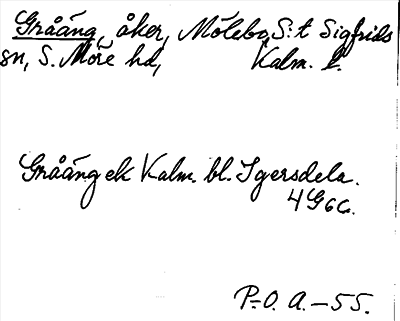 Gråäng, åker, Mölebo, S:t Sigfrids
sn, S. Möre hd, Kalm. l.
Gråäng ek Kalm. bl. Igersdela.
4G6c.
P.-O. A.-55.